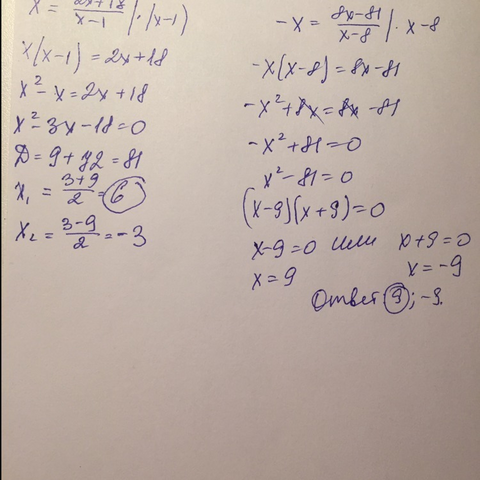 x = (2x+18)/(x-1) | · (x-1)
x(x-1) = 2x+18
x² - x = 2x+18
x² - 3x - 18 = 0
D = 9 + 72 = 81
x₁ = (3+9)/2 = 6
x₂ = (3-9)/2 = -3
-x = (8x-81)/(x-8) | · x-8
-x(x-8) = 8x-81
-x² + 8x = 8x - 81
-x² + 81 = 0
x² - 81 = 0
(x-9)(x+9) = 0
x-9=0 или x+9=0
x = 9 x = -9
Ответ 9; -9.